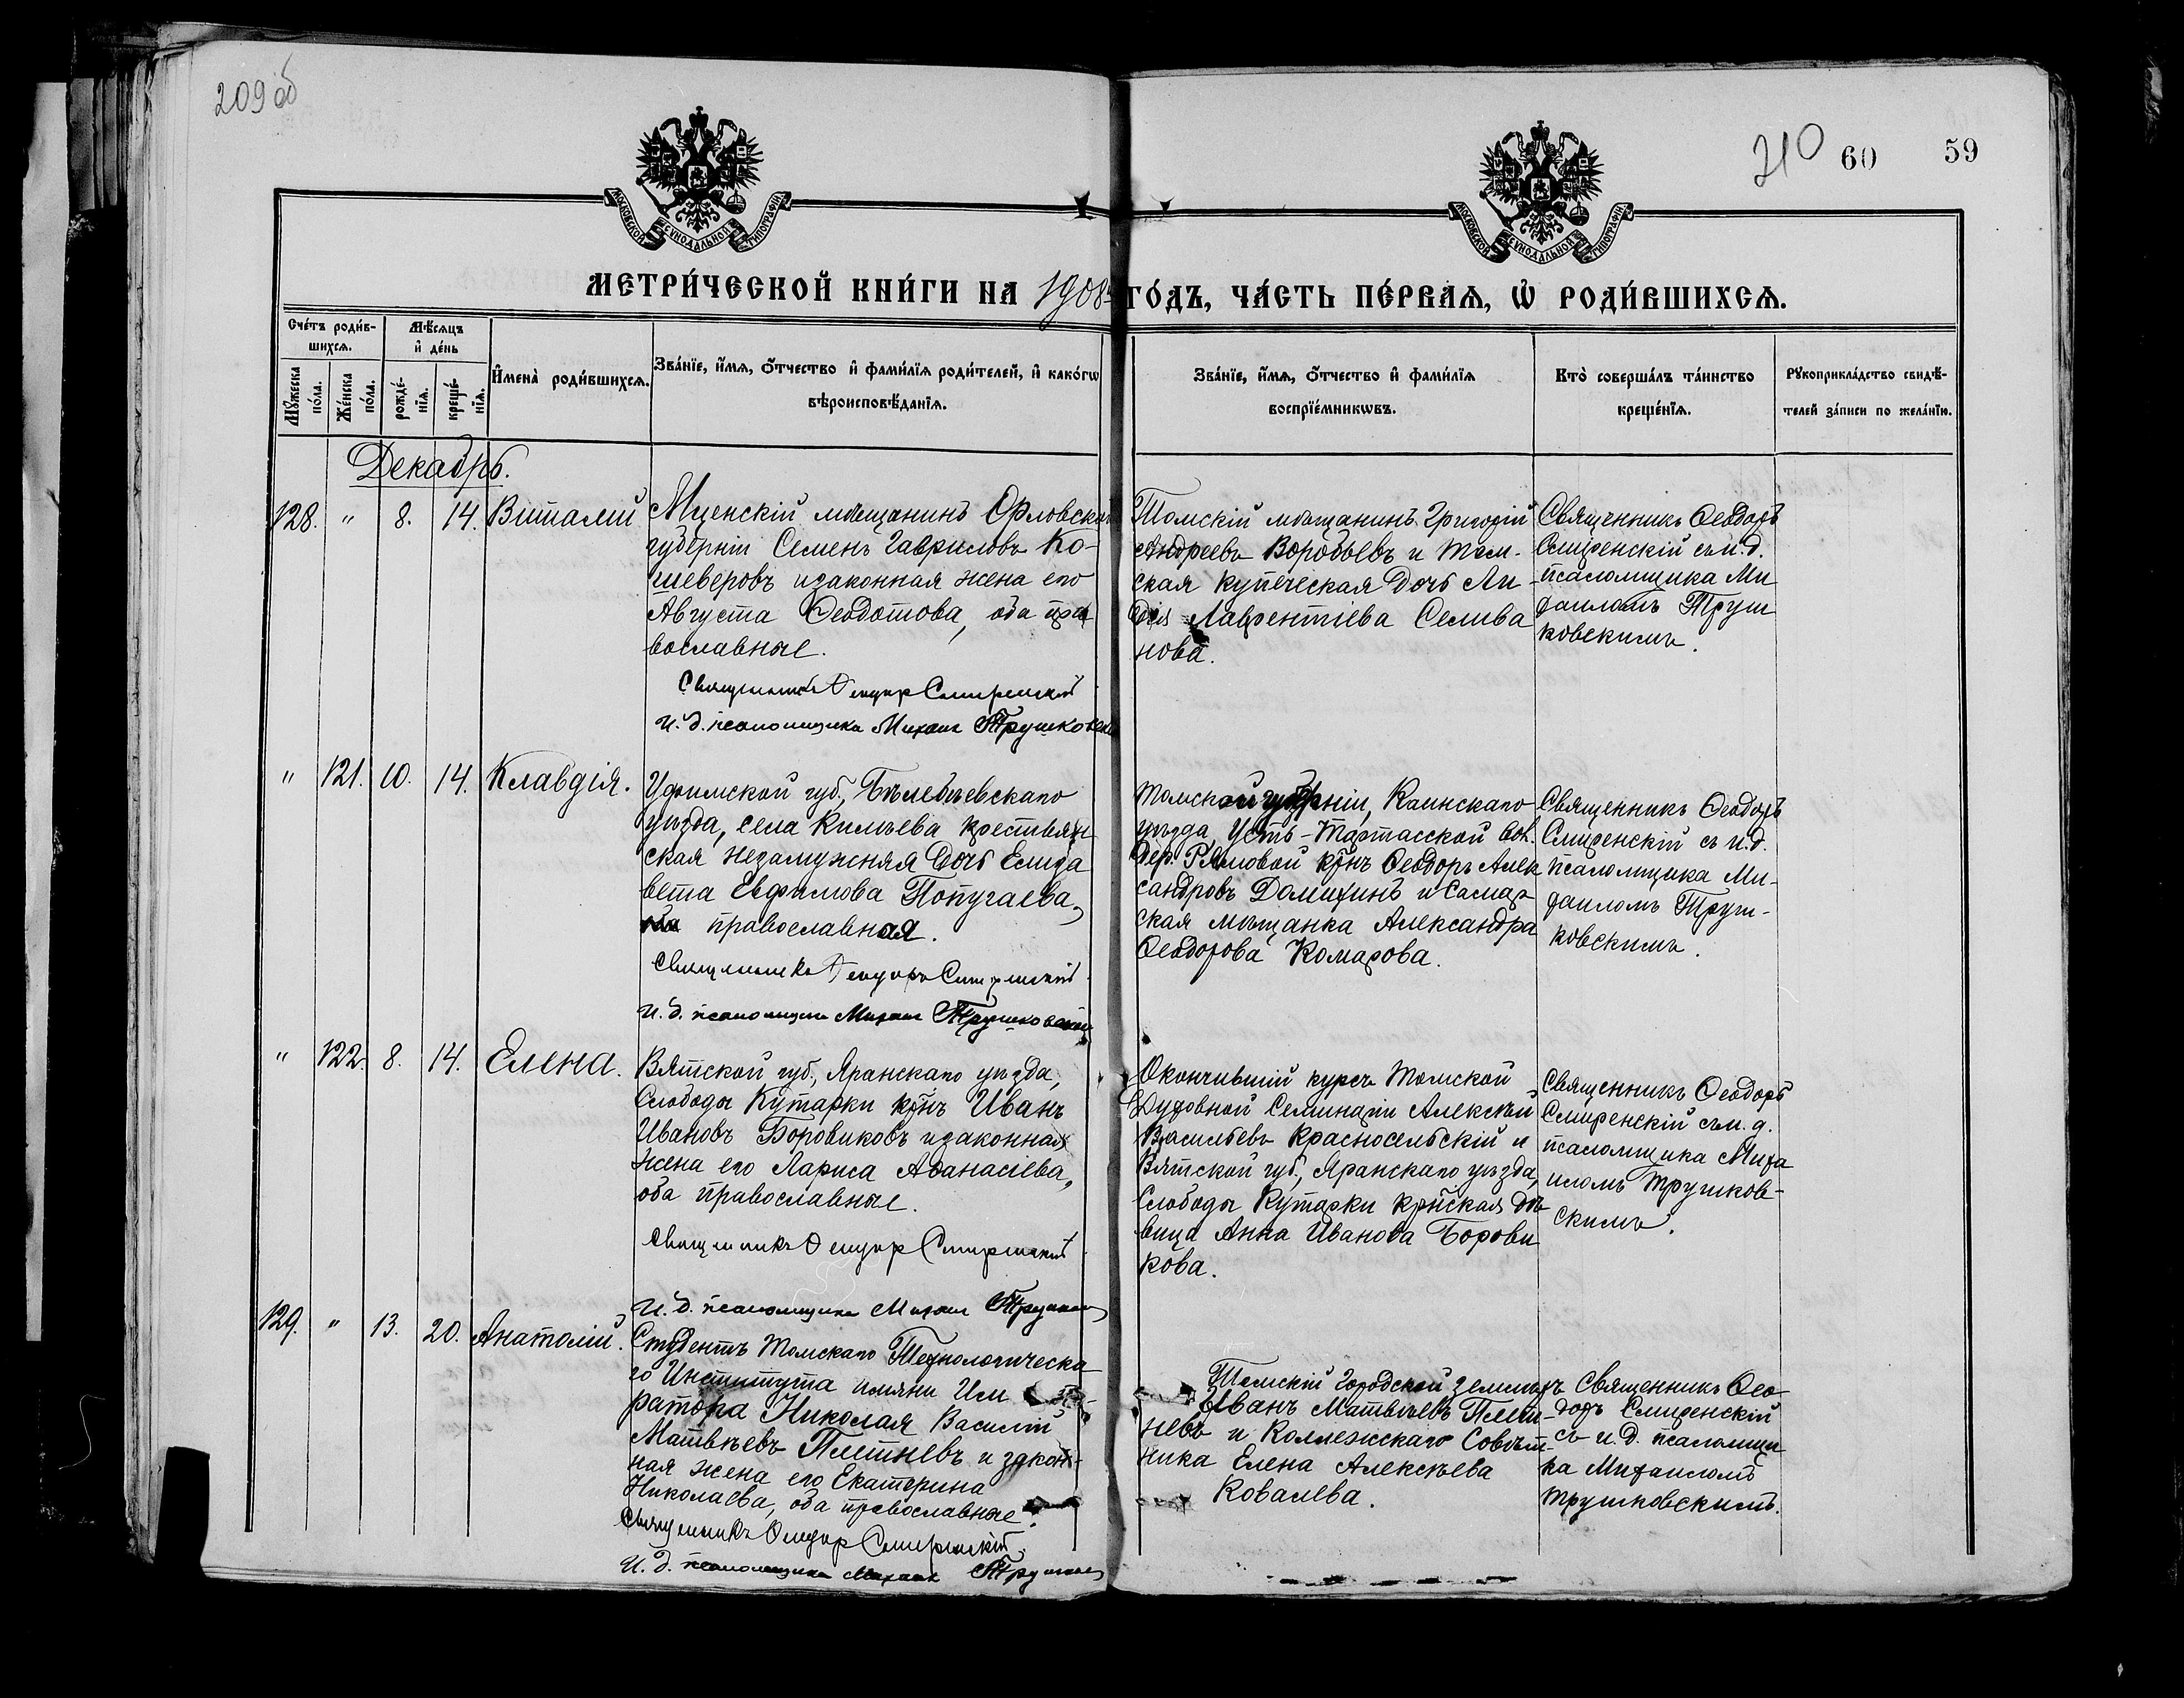 209 об
210 60 59
МОСКОВСКОЙ СѴНОДАЛЬНОЙ ТИПОГРАФІИ
МОСКОВСКОЙ СѴНОДАЛЬНОЙ ТИПОГРАФІИ
МЕТРИ́ЧЕСКОЙ КНИ́ГИ НА 1908й ГО́ДЪ, ЧА́СТЬ ПЕ́РВАѦ, Ѽ РОДИ́ВШИХСѦ.
Сче́тъ роди́в-
шихсѧ.
Мѣ́сѧцъ
и҆ де́нь
Мꙋ́жеска по́ла.
Же́нска по́ла.
рожде́-
нїѧ.
креще́-
нїѧ.
И҆мена̀ роди́вшихсѧ.
Зва́нїе, и҆́мѧ, ѻ҆́тчество и҆ фами́лїѧ роди́телей, и҆ како́гѡ
вѣроисповѣ́данїѧ.
Зва́нїе, и҆́мѧ, ѻ҆́тчество и҆ фами́лїѧ
воспрїе́мникѡвъ.
Кто̀ соверша́лъ та́инство
креще́нїѧ.
Рꙋкоприкла́дство свидѣ́-
телей за́писи по жела́нїю.
Декабрь.
128. " 8. 14. Виталій
Мценскій мѣщанинъ Орловской
губерніи Семенъ Гавриловъ Ко-
шеверовъ и законная жена его
Августа Ѳеодотова, оба пра
вославные.
Священникъ Ѳеодоръ Смиренскій
И. д. псаломщика Михаил Трушковскій
Томскій мѣщанинъ Григорій
Андреевъ Воробьевъ и Том-
ская купеческая дочь Ли-
дія Лаврентіева Селива
нова.
Священникъ Ѳеодоръ
Смиренскій съ и. д.
псаломщика Ми
хаиломъ Труш
ковскимъ.
" 121. 10. 14. Клавдія.
Уфимской губ., Бѣлебѣевскаго
уѣзда, села Килѣева крестьян
ская незамужняя дочь Елиза
вета Евфимова Попугаева,
православная.
Священникъ Ѳеодоръ Смиренскій
И. д. псаломщика Михаил Трушковскій
Томской губерніи, Каинскаго
уѣзда, Усть-Тартасской вол.
дер. Рямовой кр̃нъ Ѳеодоръ Алек
сандровъ Домихинъ и Самар
ская мѣщанка Александра
Ѳеодорова Комарова.
Священникъ Ѳеодоръ
Смиренскій съ и. д.
псаломщика Ми-
хаиломъ Труш-
ковскимъ.
" 122. 8. 14. Елена.
Вятской губ., Яранскаго уѣзда,
Слободы Кукарки кр̃нъ Иванъ
Ивановъ Боровиковъ и законная
жена его Лариса Аѳанасіева,
оба православные.
Священникъ Ѳеодоръ Смиренскій
И. д. псаломщика Михаил
Окончившій курсъ Томской
Духовной Семинаріи Алексѣй
Васильевъ Красносельскій и
Вятской губ., Яранскаго уѣзда,
Слободы Кукарки кр̃нская дѣ
вица Анна Иванова Борови
кова.
Священникъ Ѳеодоръ
Смиренскій съ и. д.
псаломщика Миха
иломъ Трушков-
скимъ.
129. " 13. 20. Анатолій.
Студентъ Томскаго Технологическа
го Института имяни Им
ратора Николая Василій
Матвѣевъ Плетневъ и закон-
ная жена его Екатерина
Николаева, оба православные.
Священникъ Ѳеодоръ Смиренскій
И. д. псаломщика Михаил
Томскій городской землемѣръ
Иванъ Матвѣевъ Плет-
невъ и Коллежскаго Совѣт-
ника Елена Алексѣева
Ковалева.
Священникъ Ѳео
доръ Смиренскій
съ и. д. псаломщи
ка Михаиломъ
Трушковскимъ.